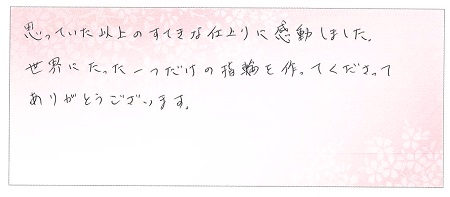 思っていた以上のすてきな仕上りに感動しました。
世界にたった一つだけの指輪を作ってくださって
ありがとうございます。